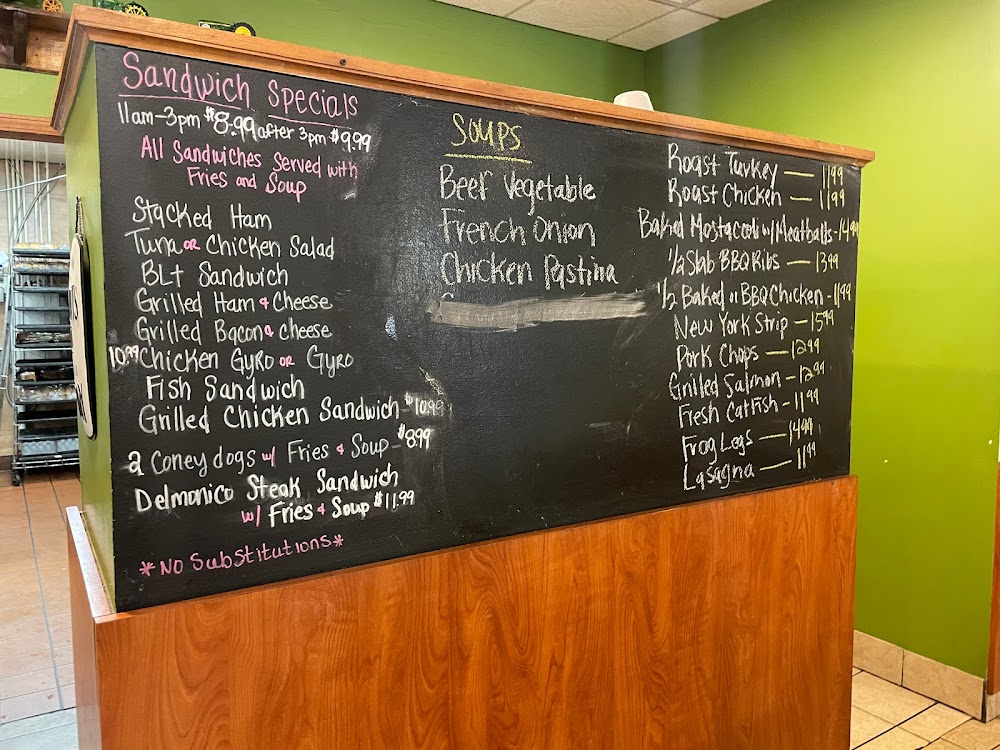 Sandwich Specials
11am-3pm $8.99 after 3pm $9.99
All Sandwiches Served with
Fries and Soup
Stacked Ham
Tuna or Chicken Salad
BLt Sandwich
Grilled Ham & Cheese
Grilled Bacon & cheese
10.99 Chicken Gyro or Gyro
Fish Sandwich
Grilled Chicken Sandwich - $10.99
2 Coney dogs w/ Fries & Soup - $8.99
Delmonico Steak Sandwich
w/ Fries & Soup $11.99
*No Substitutions*
Soups
Beef Vegetable
French Onion
Chicken Pastina
Roast Turkey — 11.99
Roast Chicken — 11.99
Baked Mostaccoli w/ Meatballs - 14.99
1/2 Slab BBQ Ribs — 13.99
1/2 Baked or BBQ Chicken - 11.99
New York Strip — 15.99
Pork Chops — 12.99
Grilled Salmon - 12.99
Fresh Catfish - 11.99
Frog Legs — 14.99
Lasagna — 11.99